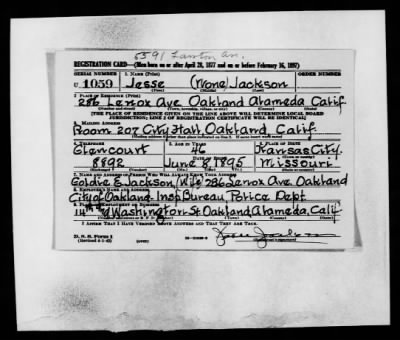 5591 Lawton Av.
REGISTRATION CARD—(Men born on or after April 28, 1877 and on or before February 16, 1897)
SERIAL NUMBER 1. NAME (Print)
U 1059 Jesse (None) Jackson
(First) (Middle) (Last)
2. PLACE OF RESIDENCE (Print)
286 Lenox Ave. Oakland Alameda Calif.
(Number and street) (Town, township, village, or city) (County) (State)
[THE PLACE OF RESIDENCE GIVEN ON THE LINE ABOVE WILL DETERMINE LOCAL BOARD
JURISDICTION; LINE 2 OF REGISTRATION CERTIFICATE WILL BE IDENTICAL]
3. MAILING ADDRESS
Room 207 City Hall, Oakland, Calif.
4. TELEPHONE 5. AGE IN YEARS 6. PLACE OF BIRTH
Glencourt 46 Kansas City
8892 June 8, 1895 Missouri
7. NAME AND ADDRESS OF PERSON WHO WILL ALWAYS KNOW YOUR ADDRESS
Goldie E Jackson (Wife) 286 Lenox Ave. Oakland
8. EMPLOYER'S NAME AND ADDRESS
City of Oakland Insp Bureau, Police Dept
9. PLACE OF EMPLOYMENT OR BUSINESS
14th & Washington St Oakland, Alameda, Calif.
I AFFIRM THAT I HAVE VERIFIED ABOVE ANSWERS AND THAT THEY ARE TRUE.
D. S. S. Form 1
Jesse Jackson
(Registrant's signature)